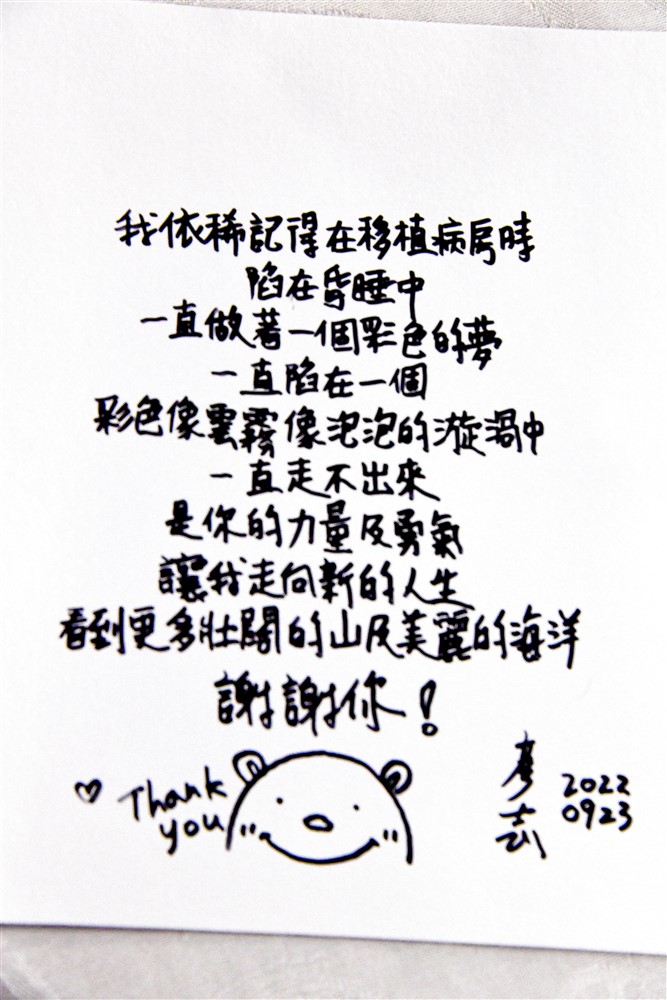 我依稀記得在移植病房時
陷在昏睡中
一直做著一個彩色的夢
一直陷在一個
彩色像雲霧像泡泡的漩渦中
一直走不出來
是你的力量及勇氣
讓我走向新的人生
看到更多壯闊的山及美麗的海洋
謝謝你！
♡ Thank you
2022
0923